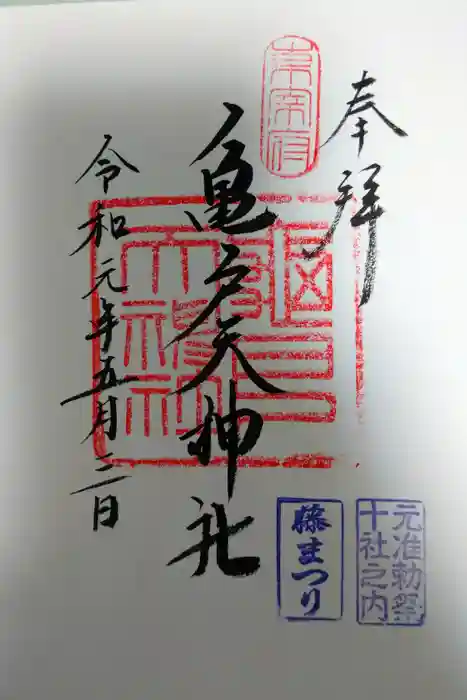 奉拝
東宰府
亀戸天神社
令和元年五月二日
藤まつり
元准勅祭
十社之内